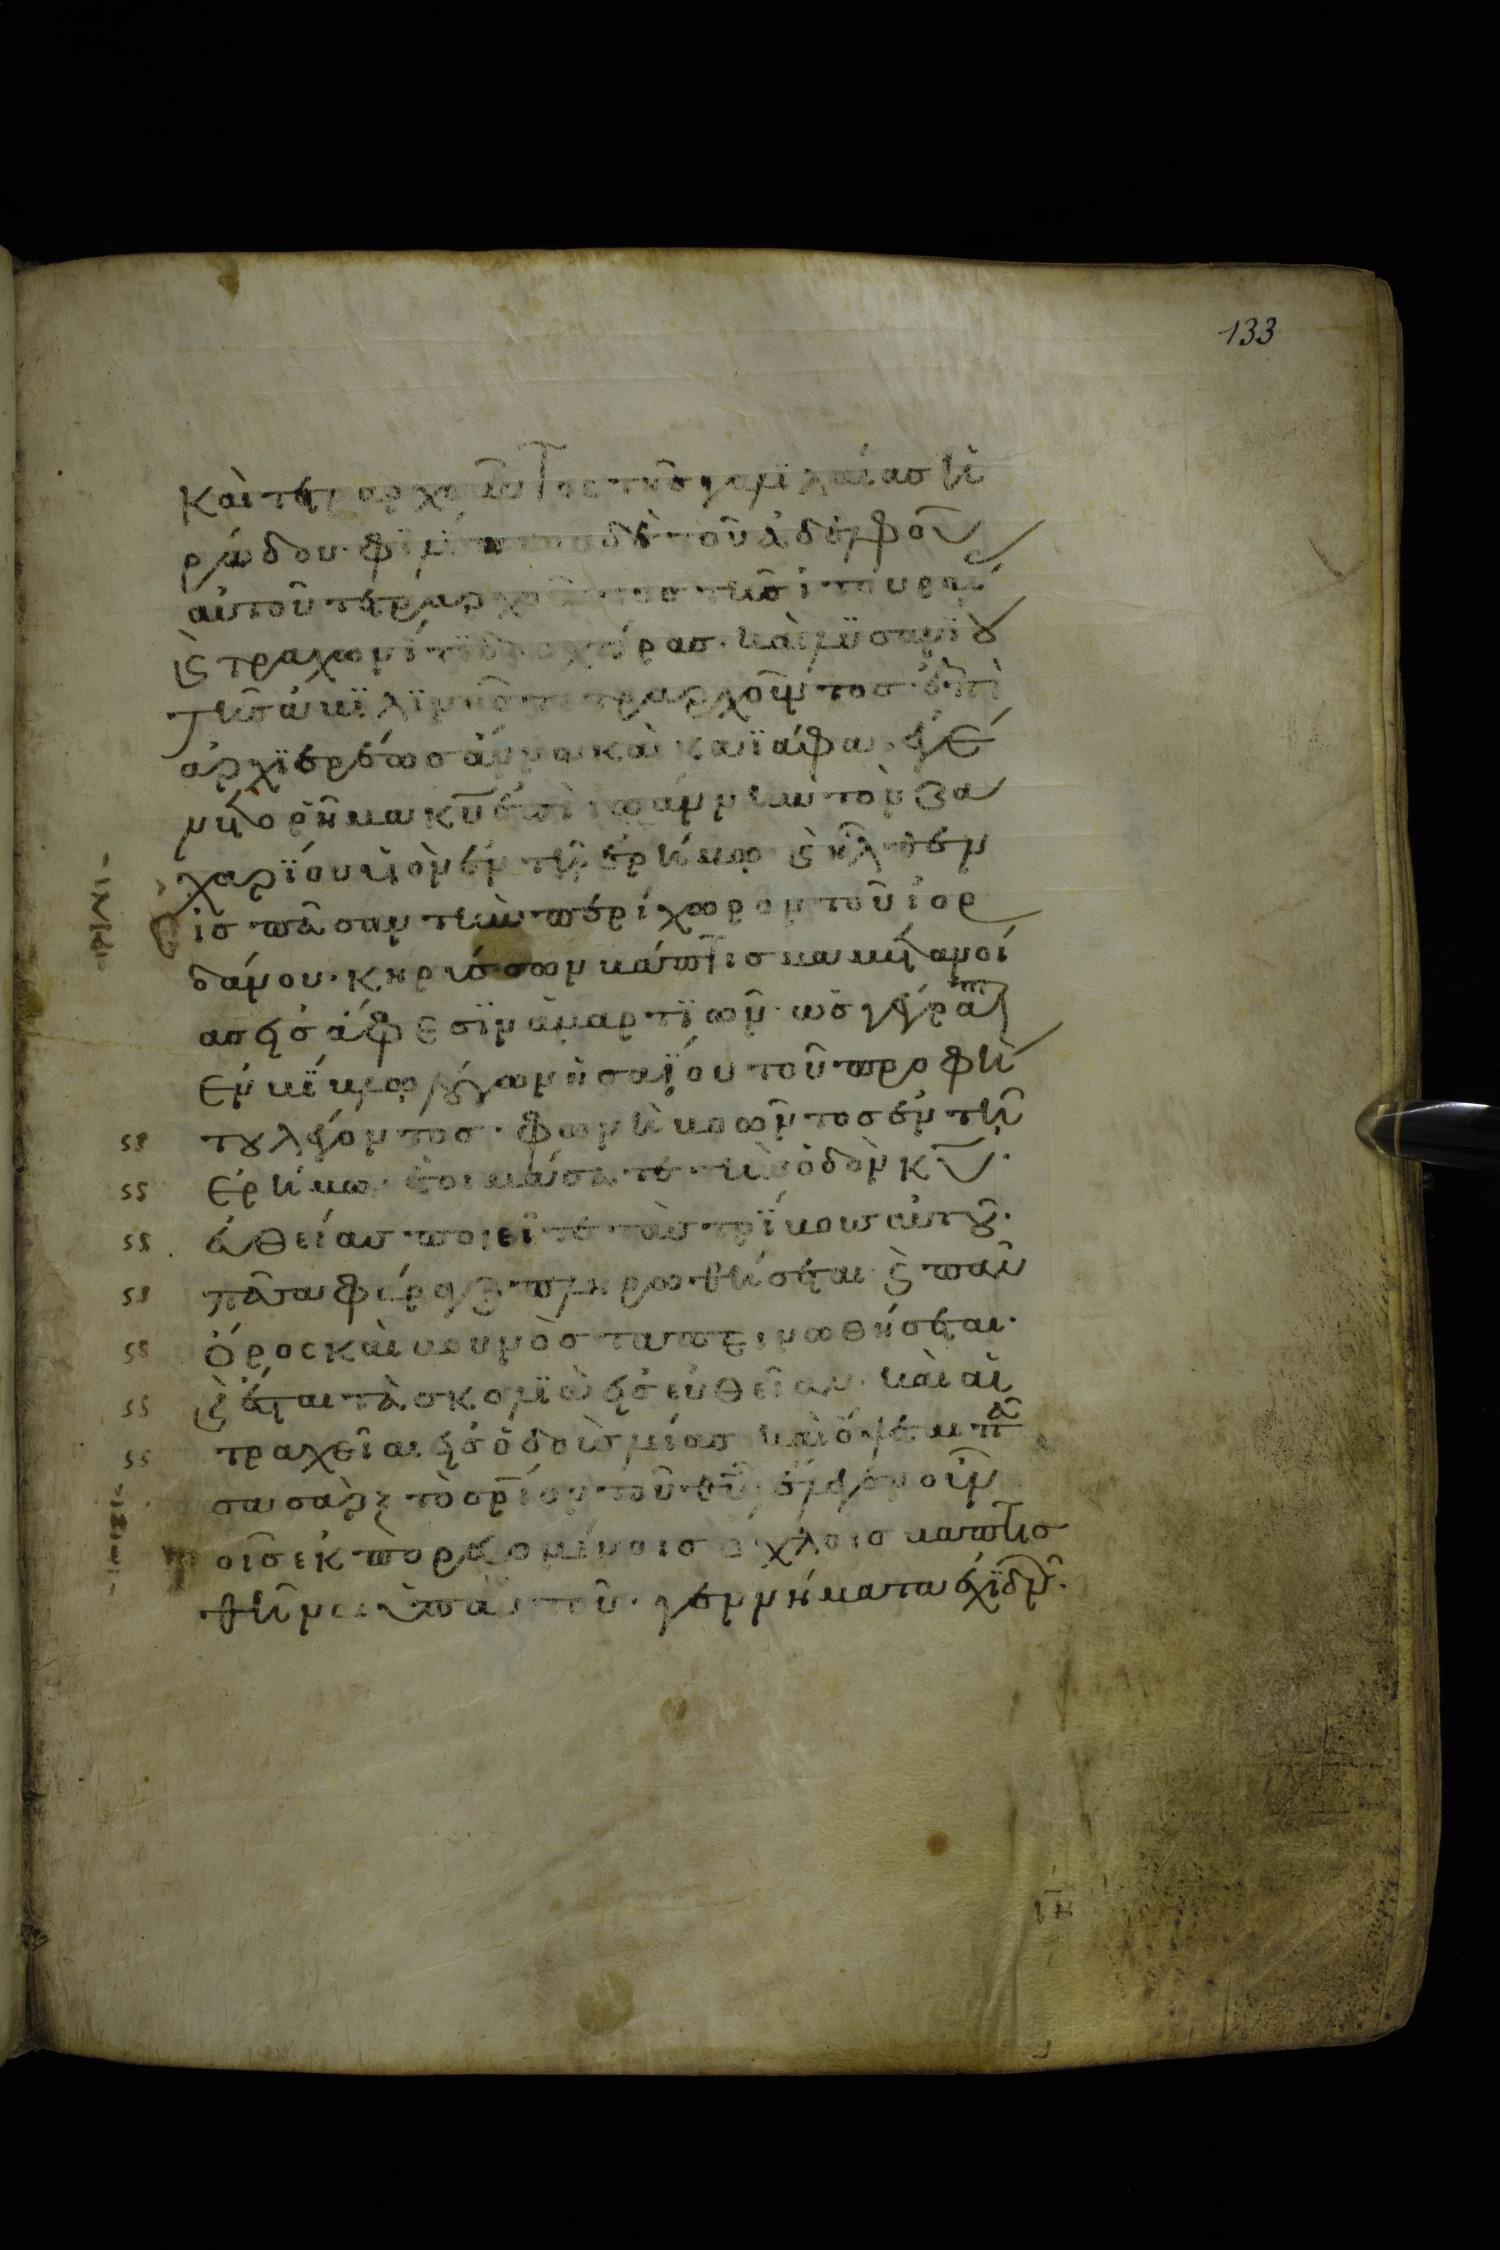 133
Καὶ τετραρχοῦντος τῆς γαλιλαίας ἡ
ρώδου· φιλίππου δὲ τοῦ ἀδελφοῦ
αὐτοῦ τετραρχοῦντος τῆς ἰτουραί
ς τραχωνίτιδος χώρας· καὶ λυσανίου
τῆς ἀβιληνῆς τετραρχοῦντος· ἐπὶ
ἀρχϊερέως ἄννα καὶ καϊάφα· ἐγέ
νετο ῥῆμα κυ ἐπὶ ἰωάννην τὸν ζα
χαρίου υἱὸν ἐν τῇ ἐρήμω· ς ἦλθεν
εἰς πᾶσαν τὴν περίχωρον τοῦ ἰορ
δάνου· κηρύσσων βάπτισμα μετανοί
ας εἰς ἄφεσϊν ἁμαρτϊῶν· ὡς γέγραπτ
ἐν βίβλω λόγων ἠσαΐου τοῦ προφή
του λέγοντος· φωνὴ βοῶντος ἐν τῇ
ἐρήμω· ἑτοιμάσατε τὴν ὁδὸν κυ·
εὐθείας ποιεῖτε τὰς τρίβους αὐτοῦ·
πᾶσα φάραγξ πληρωθήσεται ς πᾶν
ὄρος καὶ βουνὸς ταπεινωθήσεται·
ς ἔσται τὰ σκολϊὰ εἰς εὐθεῖαν· καὶ αἱ
τραχεῖαι εἰς ὁδοὺς λείας καὶ ὄψεται πᾶ
σα σὰρξ τὸ σριον τοῦ θυ· ἔλεγεν οὖν
τοῖς ἐκπορευομένοις ὄχλοις βαπτισ
θῆναι ὑπ' αὐτοῦ· γεννήματα ἐχϊδν·
ιη